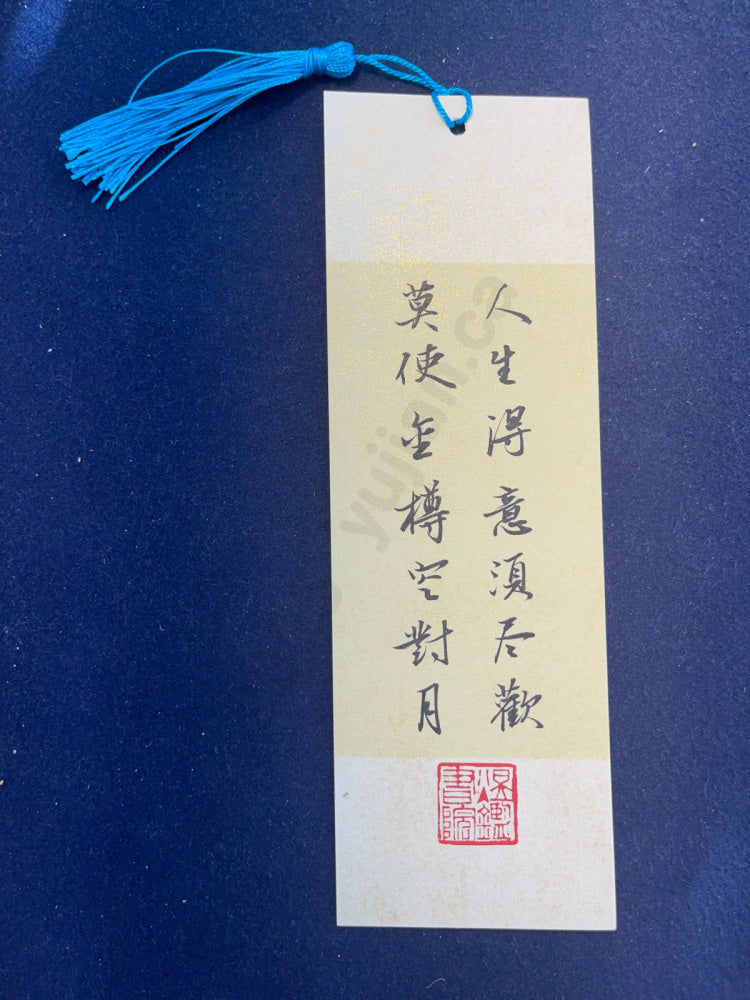 人生得意須尽歡
莫使金樽空對月
書院
yujian.ca